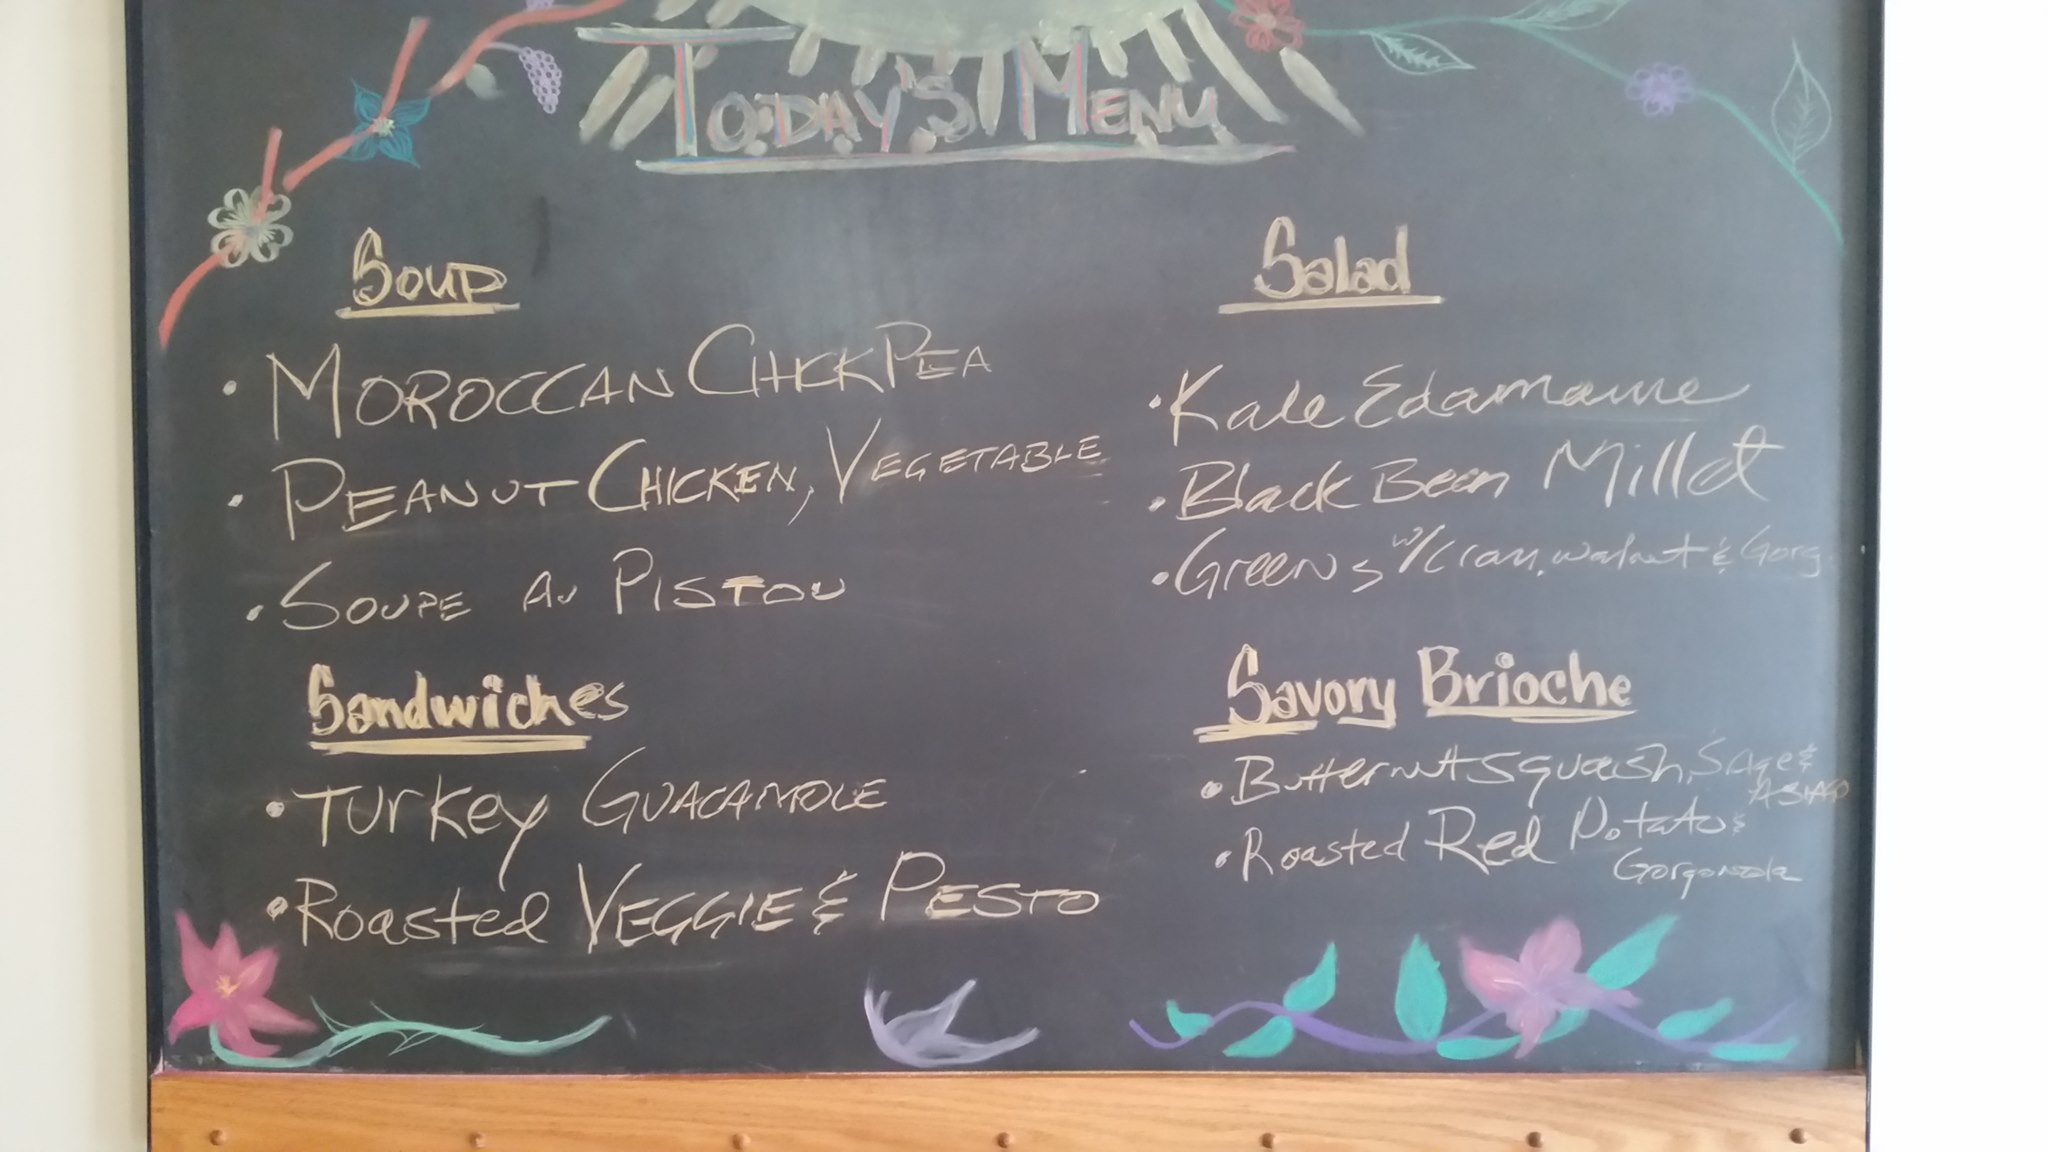 TODAY'S MENU
Soup
• MOROCCAN CHICKPEA
• PEANUT CHICKEN, VEGETABLE
• SOUPE AU PISTOU
Sandwiches
• Turkey GUACAMOLE
• Roasted VEGGIE & PESTO
Salad
• Kale Edamame
• Black Bean Millet
• Greens w/cran, walnut & Gorg.
Savory Brioche
• Butternut Squash, Sage &
ASIAGO
• Roasted Red Potato &
Gorgonzola